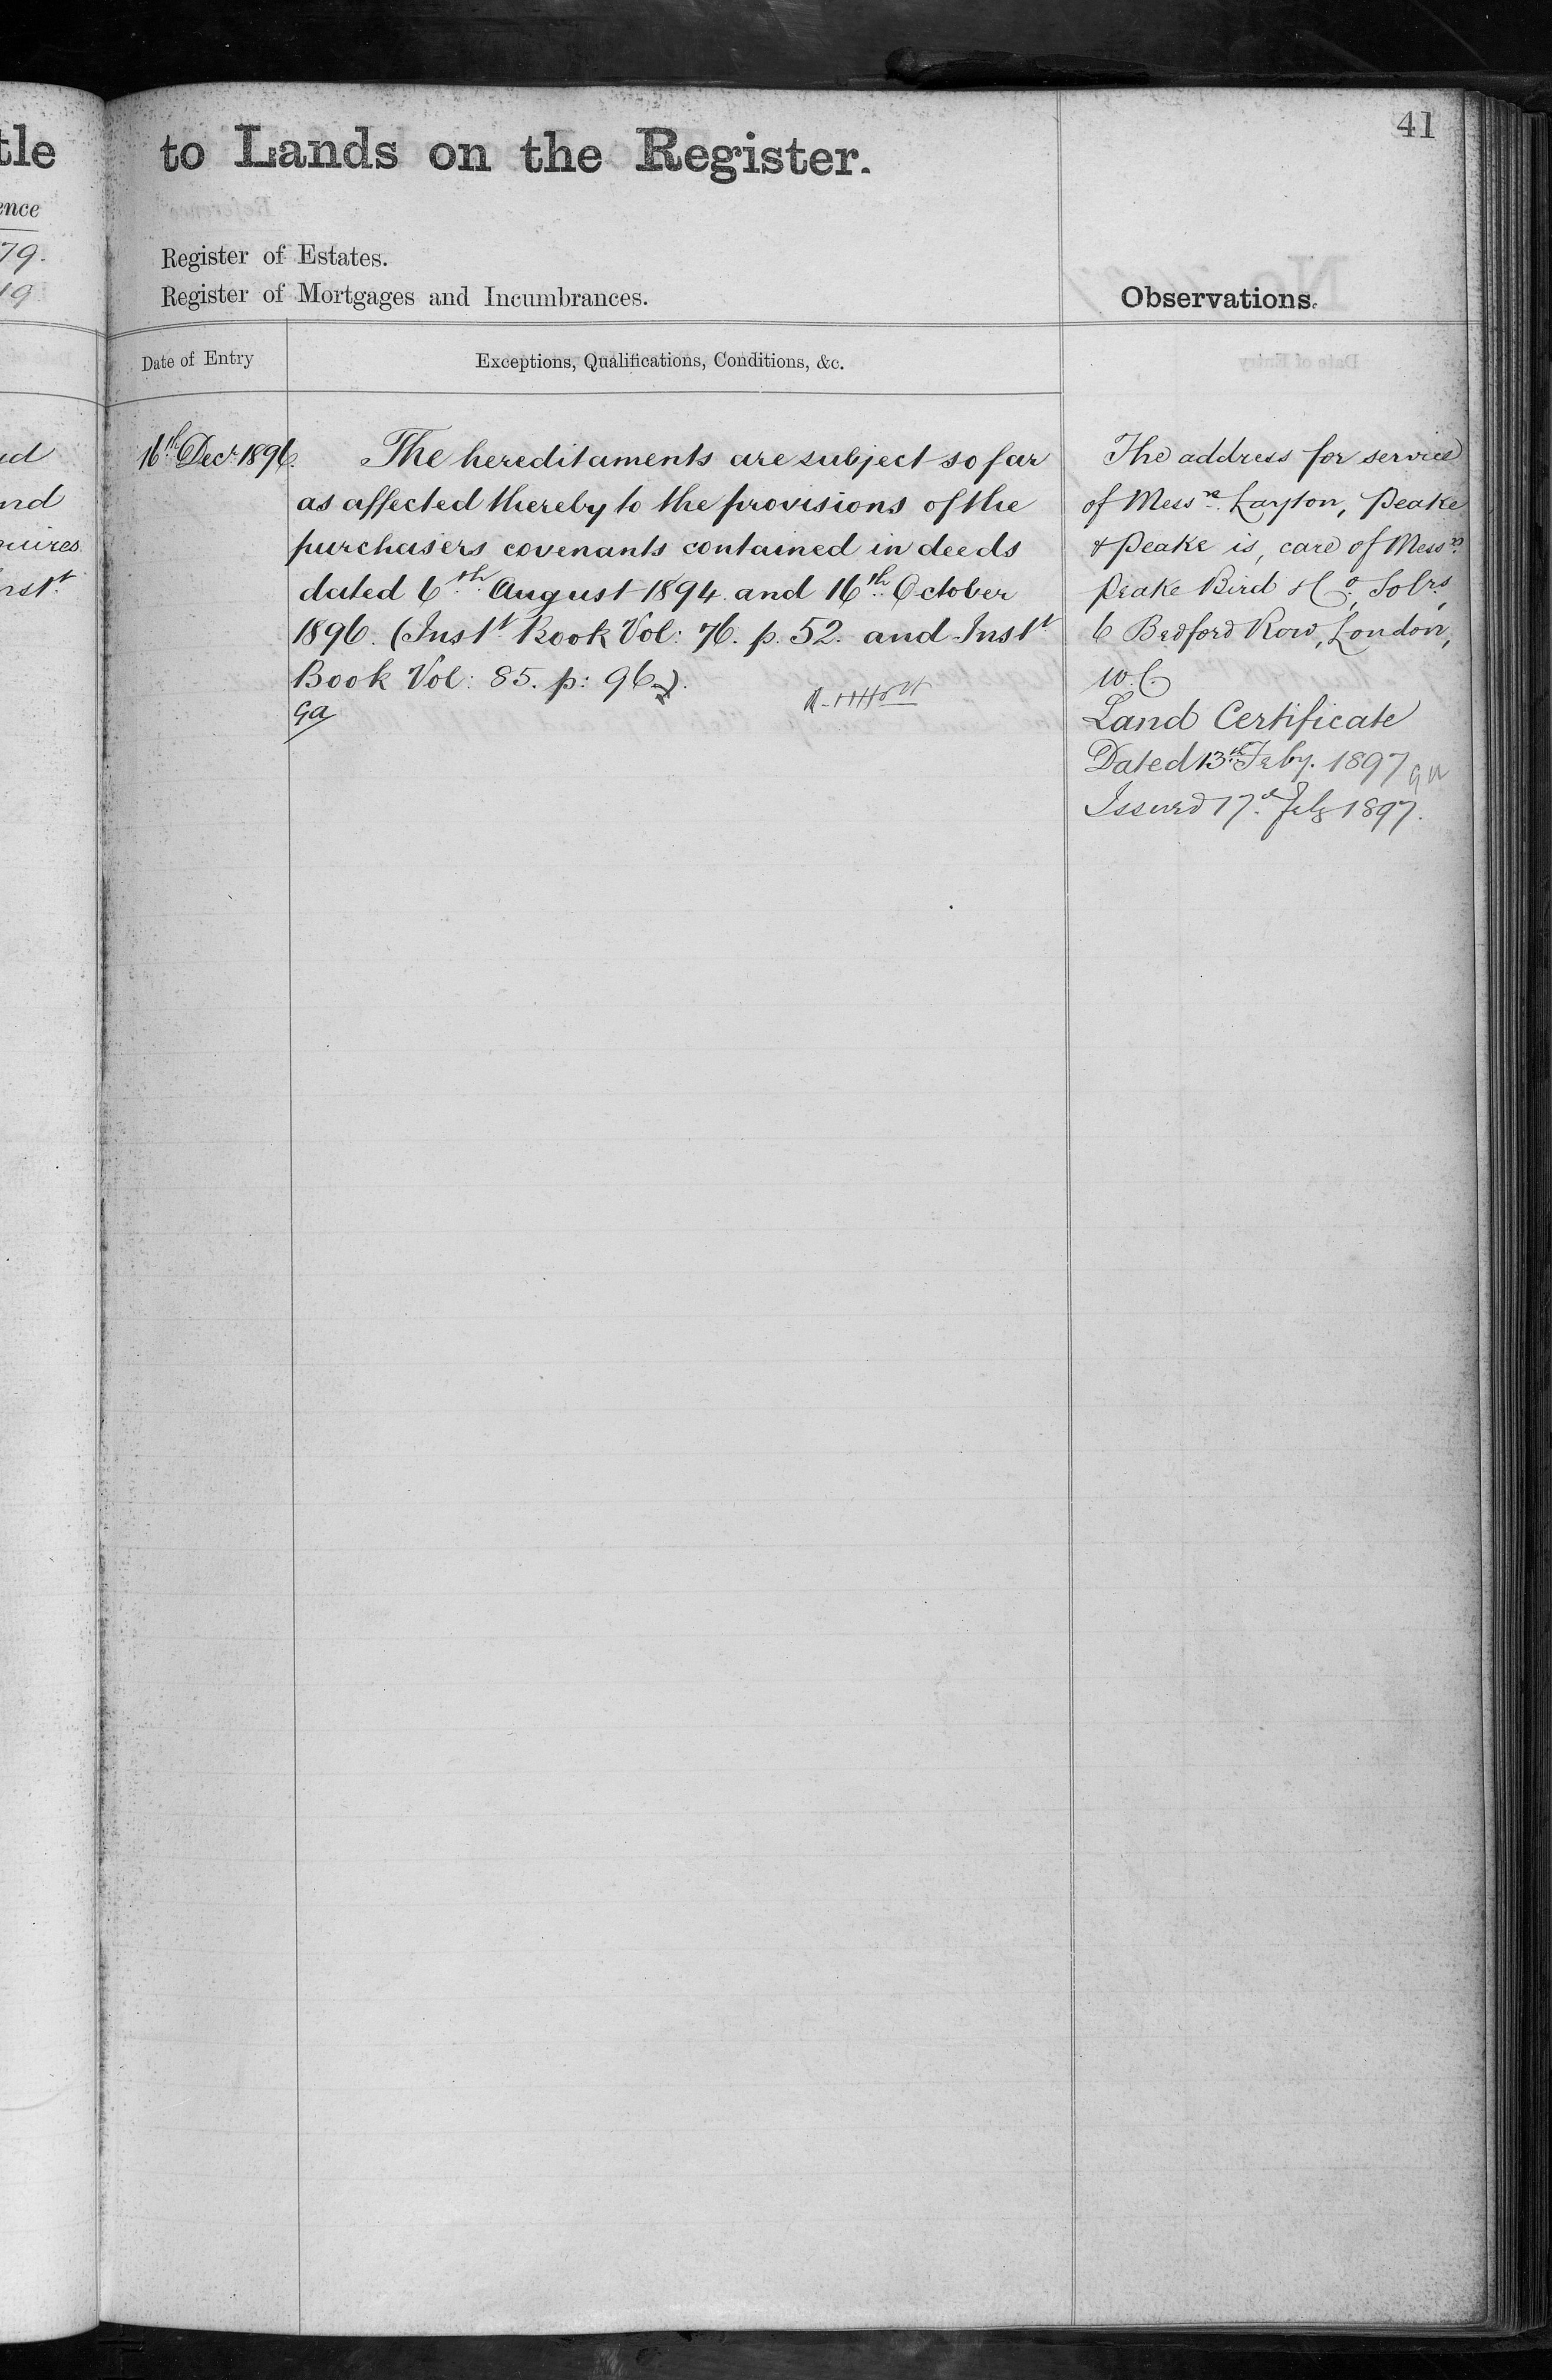 41
tle
to Lands on the Register.
ence
79.
19
Register of Estates.
Register of Mortgages and Incumbrances.
Observations.
Date of Entry
Exceptions, Qualifications, Conditions, &c.
16th Decr 1896.
The hereditaments are subject so far
as affected thereby to the provisions of the
purchasers covenants contained in deeds
dated 6th August 1894 and 16th October
1896. (Instt Book Vol: 76. p. 52. and Instt
Book Vol: 85. p: 96.).
Ga
The address for service
of Messrs Layton, Peake
& Peake is, care of Messrs
Peake Bird & Co, Solrs,
6 Bedford Row, London,
W.C.
Land Certificate
Dated 13th Feby. 1897
Issued 17th Feby 1897.
nd